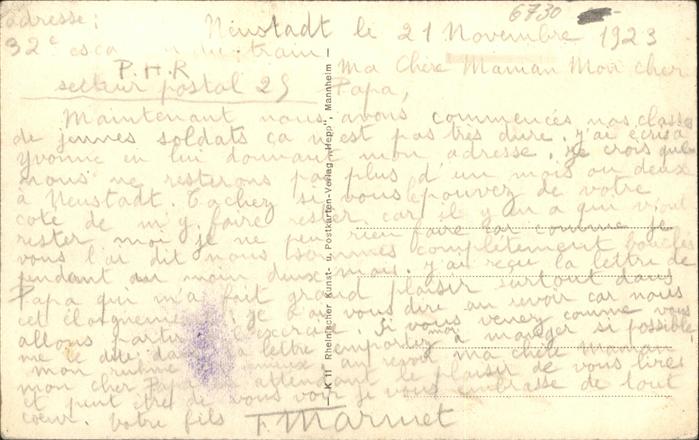 adresse:
6730
Neustadt le 21 Novembre 1923
32e du train
P.H.R
secteur postal 25
Ma Chère Maman Mon cher
Papa,
Maintenant nous avons commencés nos classe
de jeunes soldats ça n'est pas très dure. j'ai écris à
Yvonne en lui donnant mon adresse. je crois que
nous ne resterons pas plus d'un mois ou deux
à Neustadt. Tachez si vous pouvez de votre
coté de m'y faire rester car il y en a qui
rester moi je ne peu rien faire car comme je
vous l'ai dit nous sommes complètement bouclés
pendant au moin deux mois. j'ai reçu la lettre de
Papa qui m'a fait grand plaisir surtout dans
cet éloignement je vous dire au revoir car nous
allons partir l'exercice. Si vous venez comme vous
me le dite dans lettre emportez moi à manger si possible
mon au revoir ma chère Maman
mon cher Papa attendant le plaisir de vous lire
et peut être de vous voir je vous embrasse de tout
coeur. Votre fils F. Marmet
K 11 Rheinischer Kunst- u. Postkarten-Verlag „Hepp", Mannheim